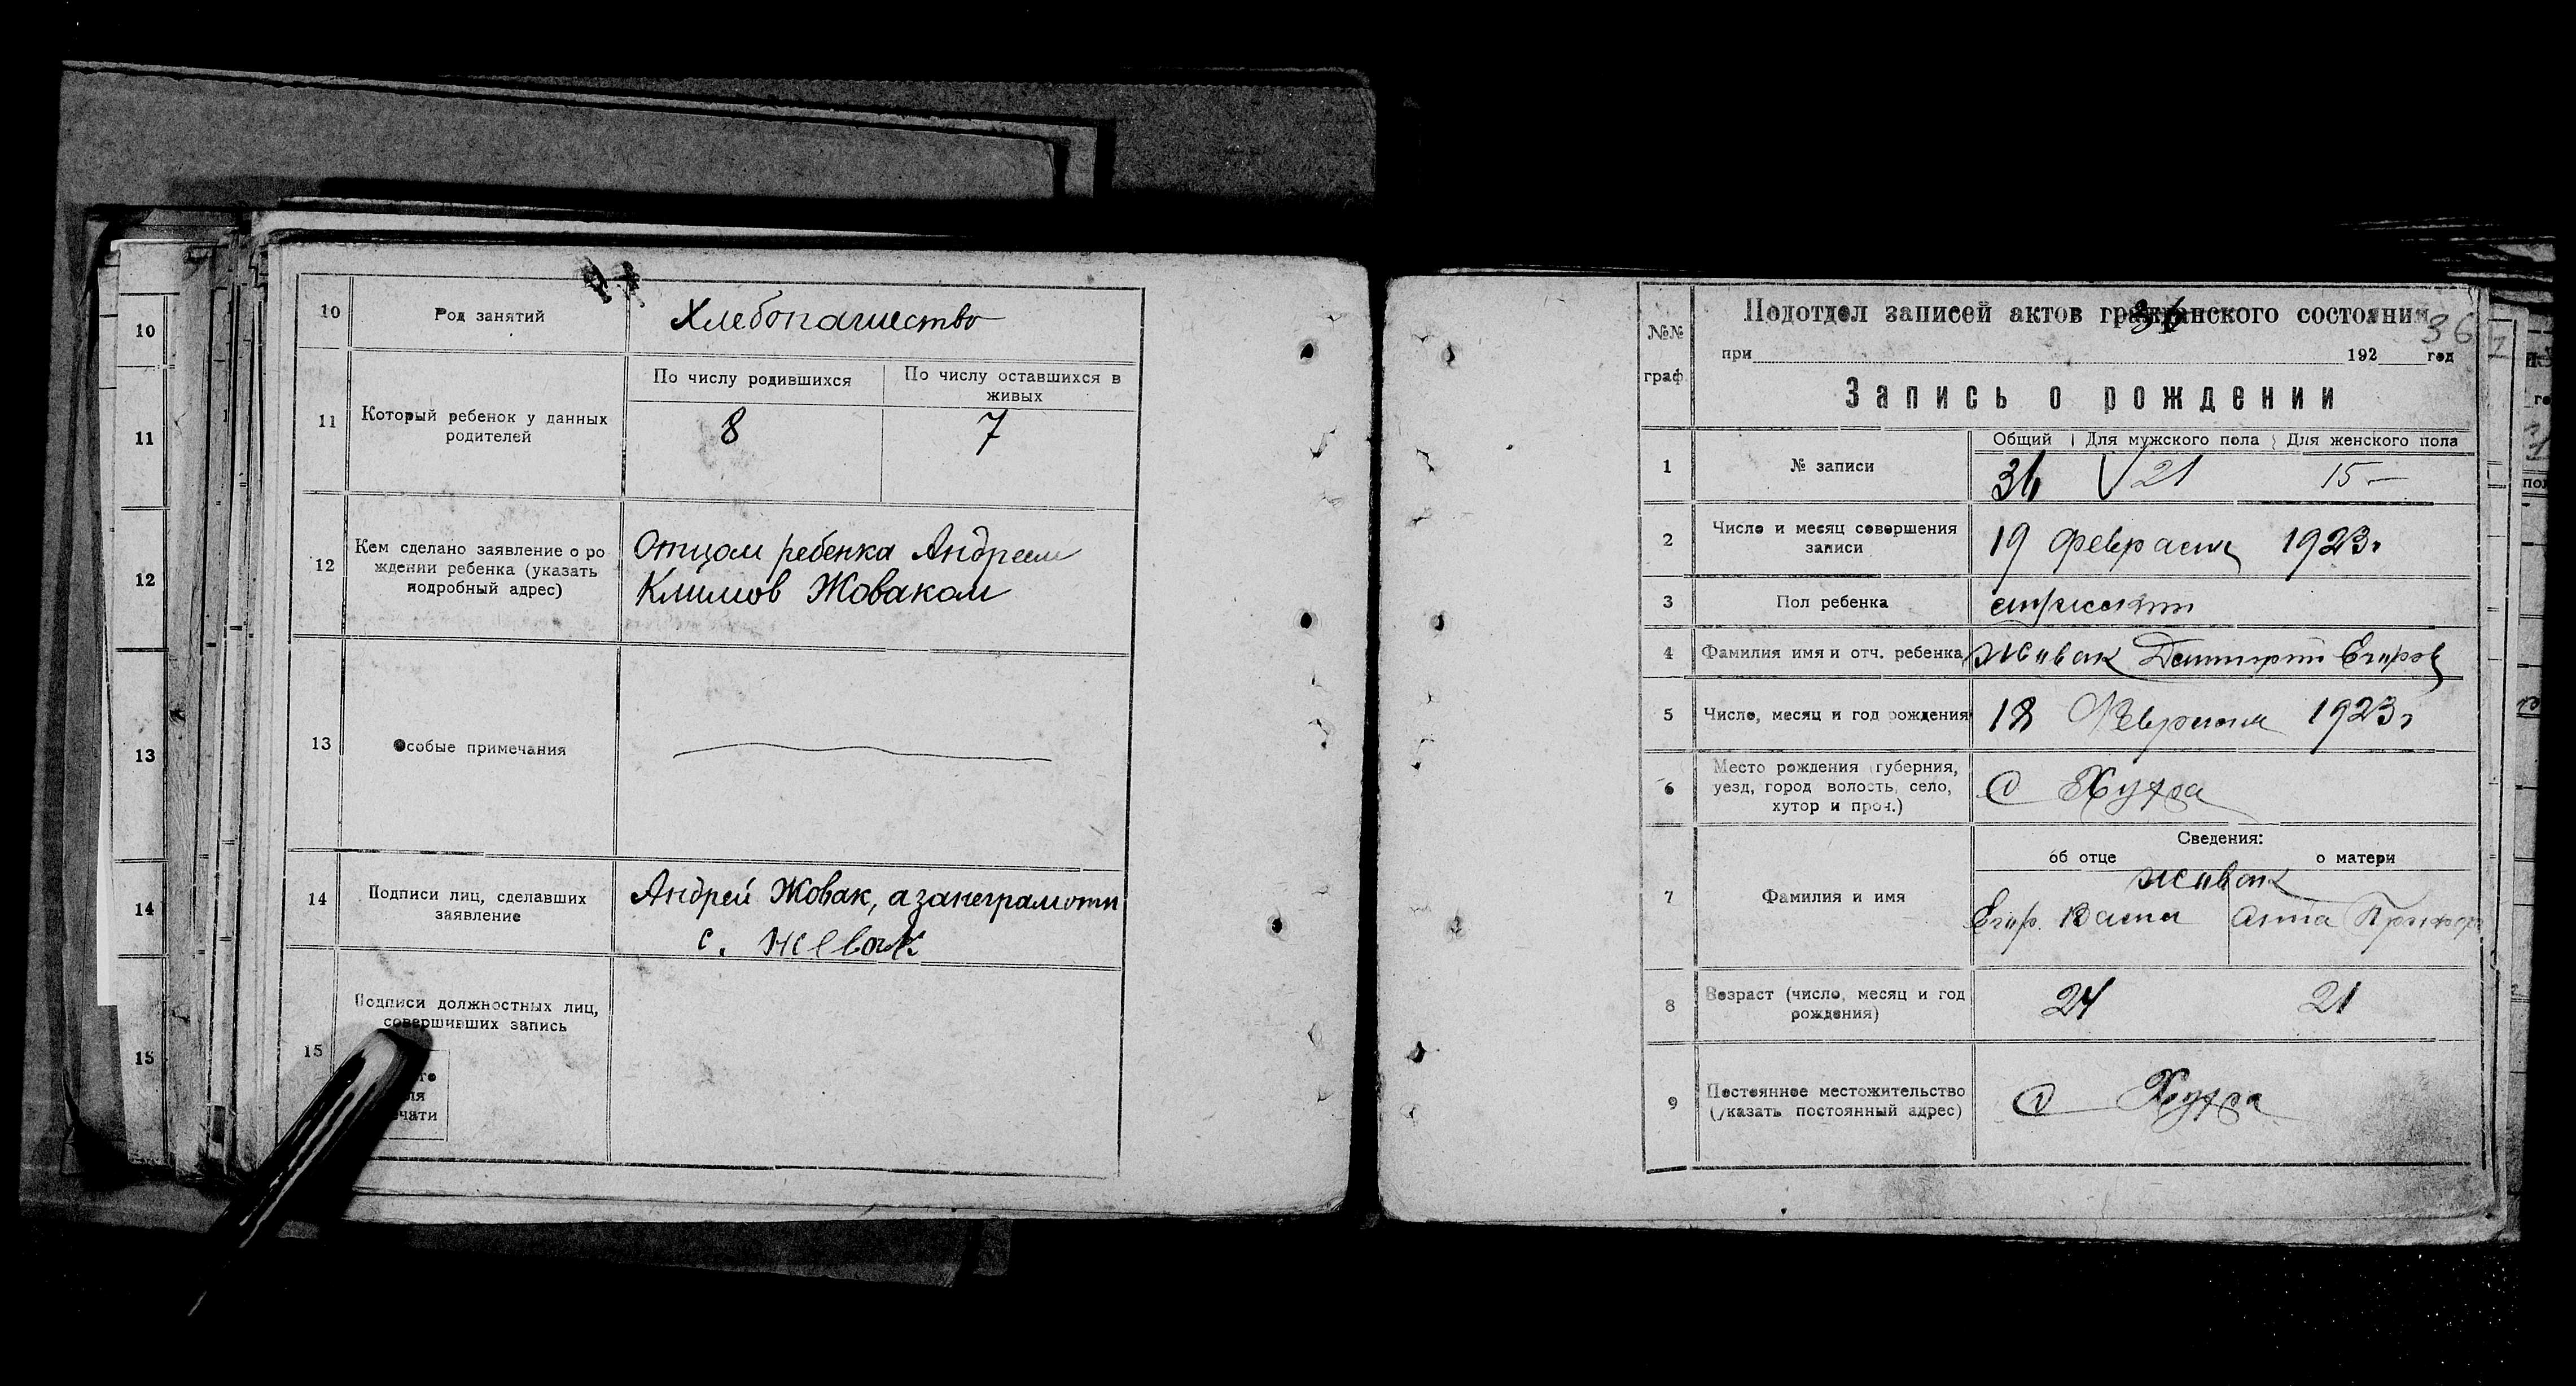 10
11
12
13
14
15
10
Род занятий
Хлебопашество
11
Который ребенок у данных
родителей
По числу родившихся
По числу оставшихся в
живых
8
7
12
Кем сделано заявление о ро
ждении ребенка (указать
подробный адрес)
Отцом ребенка Андреем
Климов Жоваком
13
Особые примечания
14
Подписи лиц, сделавших
заявление
Андрей Жовак, а занеграмотн
с. Жевак
15
Подписи должностных лиц,
совершивших запись
чати
№№
граф
Подотдел записей актов гражданского состояния
36
36
при 192 год
Запись о рождении
1
№ записи
Общий Для мужского пола Для женского пола
36 21 15 –
2
Число и месяц совершения
записи
19 февраля 1923г
3
Пол ребенка
4
Фамилия имя и отч. ребенка
Жовак Дмитрий Егоров
5
Число, месяц и год рождения
18 Февраля 1923г
6
Место рождения (губерния,
уезд, город волость, село,
хутор и проч.)
С Хутра
7
Фамилия и имя
Сведения:
об отце
о матери
Жовак
Егор. Васил
Анна
8
Возраст (число, месяц и год
рождения)
24
21
9
Постоянное местожительство
(указать постоянный адрес)
С Хутра